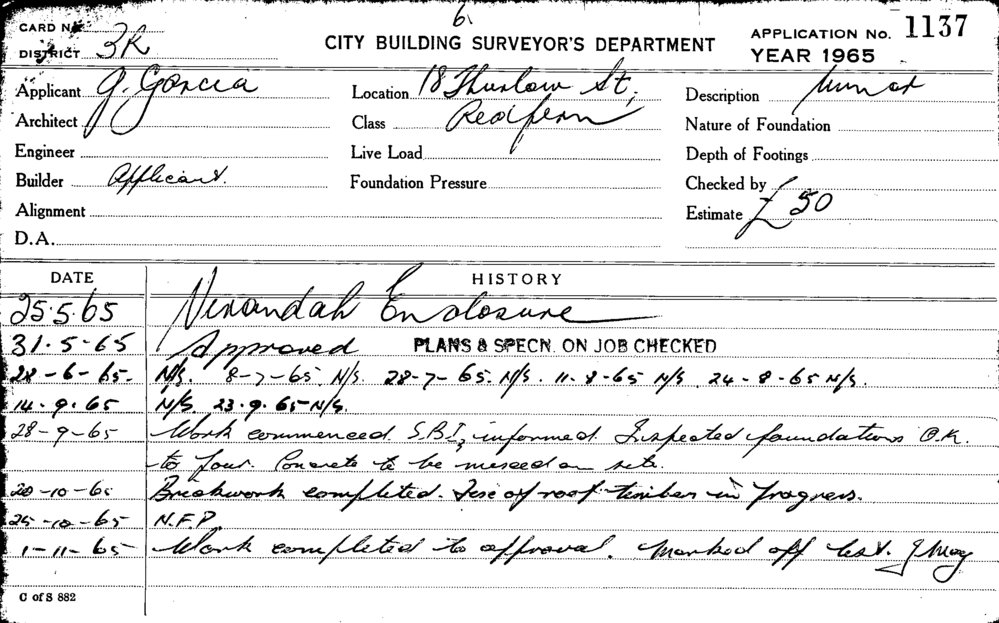 6.
CARD No.
CITY BUILDING SURVEYOR'S DEPARTMENT
APPLICATION No. 1137
DISTRICT 3R
YEAR 1965
Applicant G. Garcia
Location 18 Thurlow St,
Description Minor
Architect
Class Redfern
Nature of Foundation
Engineer
Live Load
Depth of Footings
Builder Applicant.
Foundation Pressure
Checked by
Alignment
Estimate £50
D.A.
DATE HISTORY
25.5.65 Verandah Enclosure
31.5-65 Approved PLANS & SPECN. ON JOB CHECKED
28-6-65. N/S. 8-7-65. N/S. 28-7-65. N/S. 11-8-65 N/S. 24-8-65 N/S.
14.9.65 N/S. 23.9.65-N/S.
28-9-65 Work commenced. S.B.I, informed. Inspected foundations O.K.
to pour. Concrete to be mixed on site.
20-10-65 Brickwork completed. of roof timber in Progress.
25-10-65 N.F.P.
1-11-65 Work completed to approval. Marked off J May
C of S 882